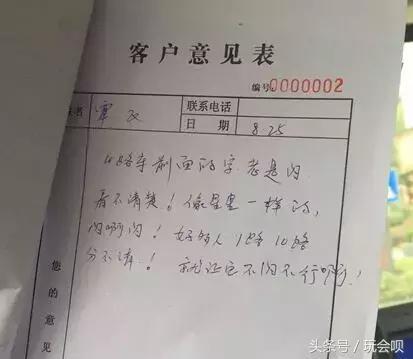 客户意见表
编号0000002
姓名 联系电话
日期 8.25
4路车前面的字老是闪
看不清楚！像星星一样的，
闪啊闪！好多人1路10路
分不清！就让它不闪不行啊！
您的意见
头条号/玩会呗